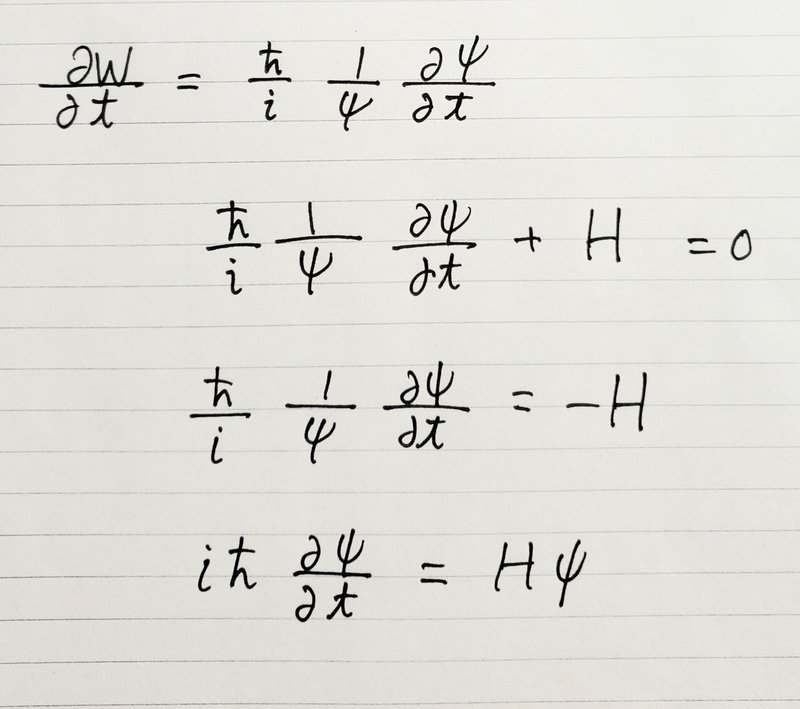 ∂W/∂t = ℏ/i 1/ψ ∂ψ/∂t
ℏ/i 1/ψ ∂ψ/∂t + H = 0
ℏ/i 1/ψ ∂ψ/∂t = -H
iℏ ∂ψ/∂t = Hψ